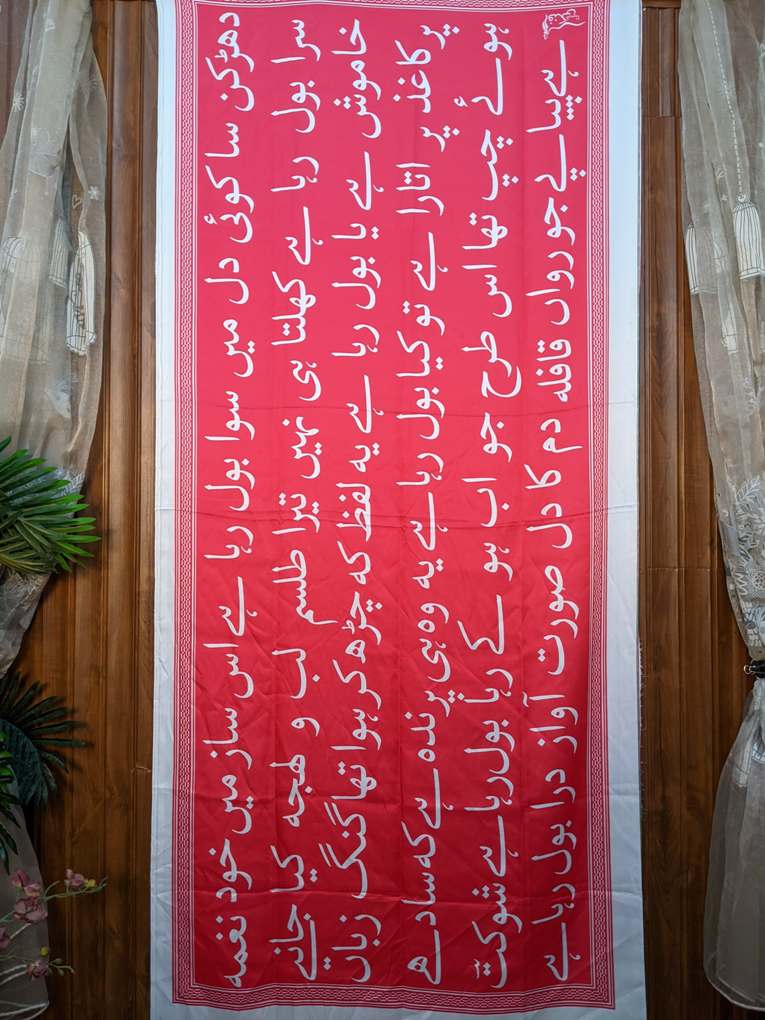 دھڑکن سا کوئی دل میں سوا بول رہا ہے اس ساز میں خود نغمہ
سرا بول رہا ہے کھلتا ہی نہیں تیرا طلسم لب و لهجه کیا جانیے
خاموش ہے یا بول رہا ہے یہ لفظ که چڑھ کر ہوا تھا گنگ زباں
پر کاغذ پر اتارا ہے تو کیا بول رہا ہے یہ وہ ہی پرندہ ہے که سادھے
ہوئے چپ تھا اس طرح جو اب ہو کے رہا بول رہا ہے شوکت
ہے پیاپے جو رواں قافلہ دم کا دل صورت آواز درا بول رہا ہے